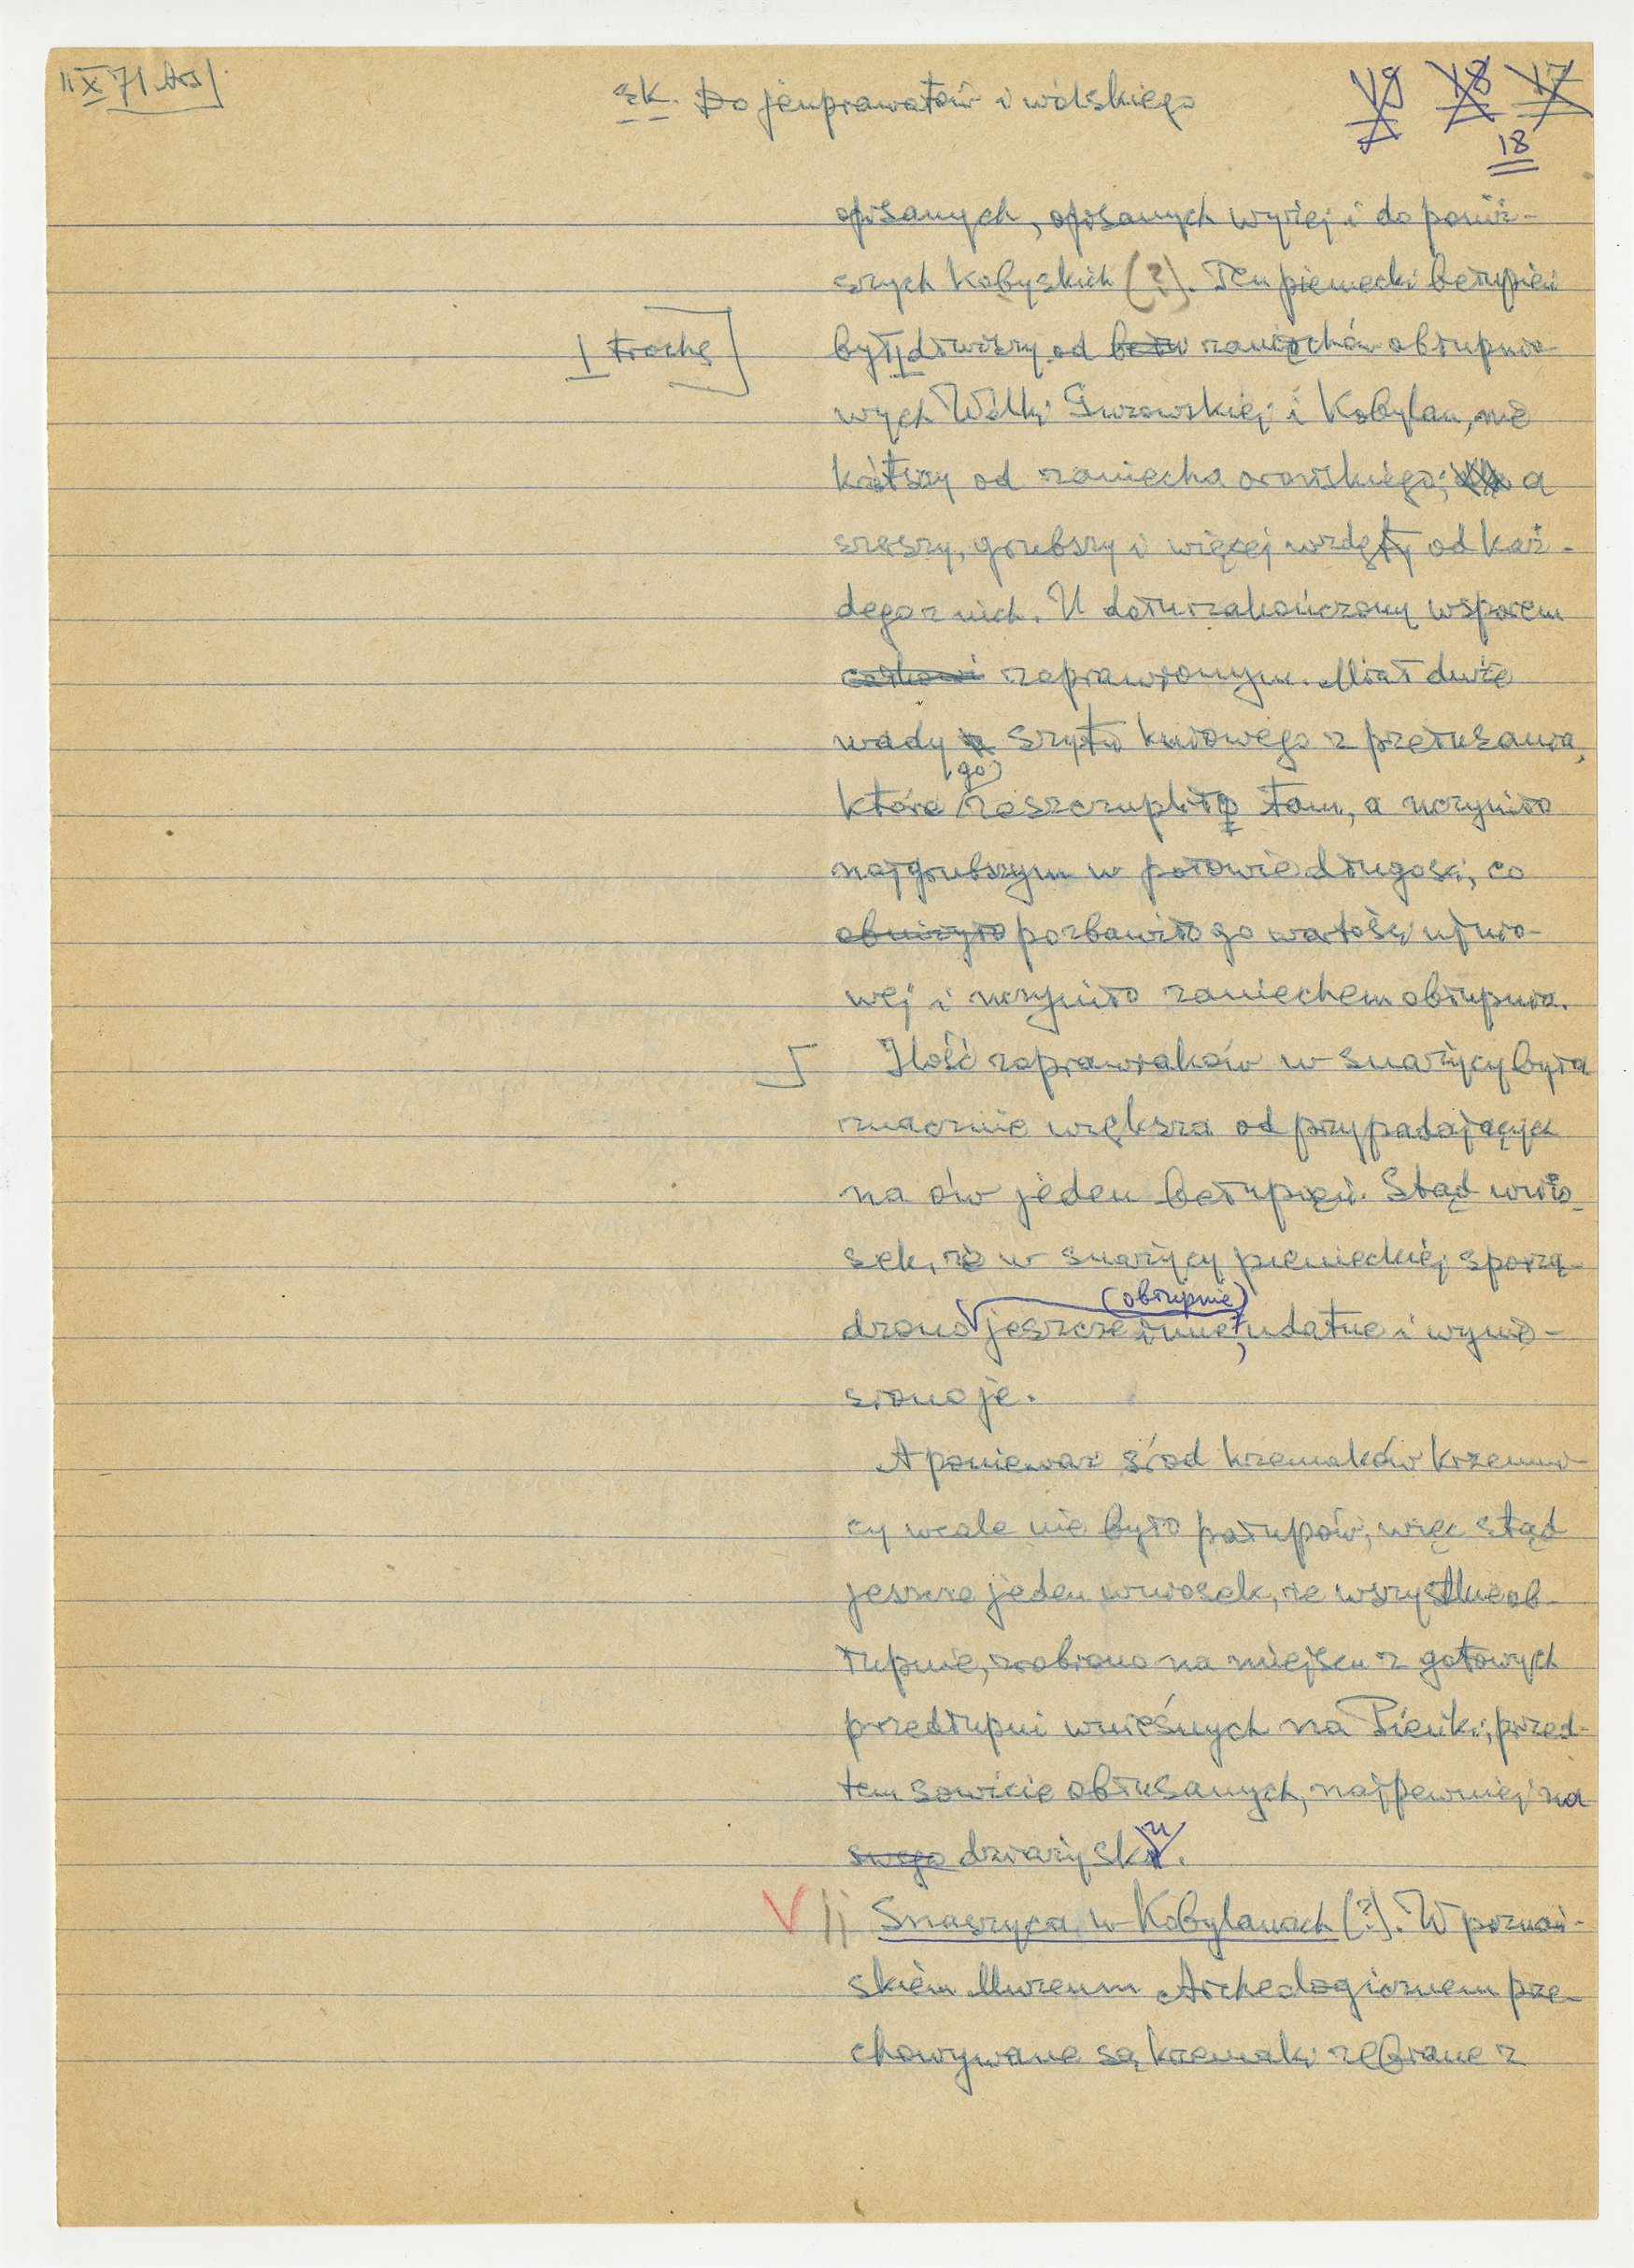 11 X 71 Ars].
sk. Do jenprawatów i wólskiego
19 18 17
18
opisanych, opisanych wyżej i do poniż-
szych kobyskich (?). Ten pieniecki bełupień
był dłuższy od zaniechów obłupnio-
I trochę]
wych Wólki Gurowskiej i Kobylan, nie
krótszy od zaniecha orońskiego; a
szerszy, grubszy i więcej wzdęty od każ-
dego z nich. U dołu zakończony wsporem
zaprawionym. Miał duże
wady szyłu kniowego z przełusania,
(go)
które zeszczupliło tam, a uczyniło
najgrubszym w połowie długości, co
obniżyło pozbawiło go wartości użnio-
wej i uczyniło zaniechem obłupnia.
Ilość zaprawiaków w snażycy była
znacznie większa od przypadających
na ów jeden bełupień. Stąd wnio-
sek, że w snażycy pienieckiej sporzą-
(obłupnie)
dzono jeszcze inne, udatne i wynie-
siono je.
A ponieważ śród krzemaków krzemni-
cy wcale nie było połupów, więc stąd
jeszcze jeden wniosek, że wszystkie ob-
łupnie, zrobiono na miejscu z gotowych
przedłupni wnieśnych na Pieńki, przed-
tem sowicie obłusanych, najpewniej na
swego dziażysku.
Snaszyca w Kobylanach (?). W poznań-
skièm Muzeum Archeologicznem prze-
chowywane są krzemaki zebrane z